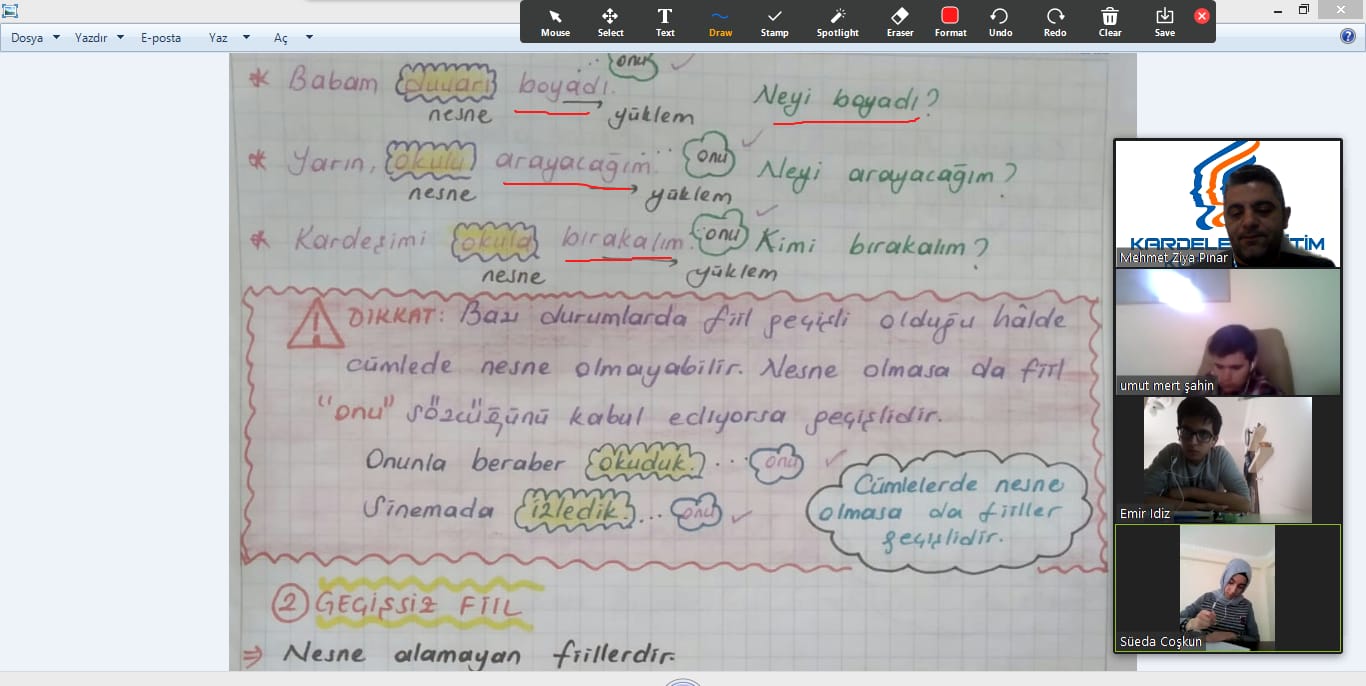 Mouse Select Text Draw Stamp Spotlight Eraser Format Undo Redo Clear Save
Dosya Yazdır E-posta Yaz Aç
onu
* Babam duvarı boyadı. Neyi boyadı?
nesne yüklem
* Yarın, okulu arayacağım. onu Neyi arayacağım?
nesne yüklem
* Kardeşimi okula bırakalım. onu Kimi bırakalım?
nesne yüklem
DİKKAT: Bazı durumlarda fiil geçişli olduğu hâlde
cümlede nesne olmayabilir. Nesne olmasa da fiil
"onu" sözcüğünü kabul ediyorsa geçişlidir.
Onunla beraber okuduk. ... onu
Sinemada izledik. ... onu
Cümlelerde nesne
olmasa da fiiller
geçişlidir.
2 GEÇİŞSİZ FİİL
⇒ Nesne alamayan fiillerdir.
KARDELE ĞİTİM
Mehmet Ziya Pınar
umut mert şahin
Emir Idiz
Süeda Coşkun